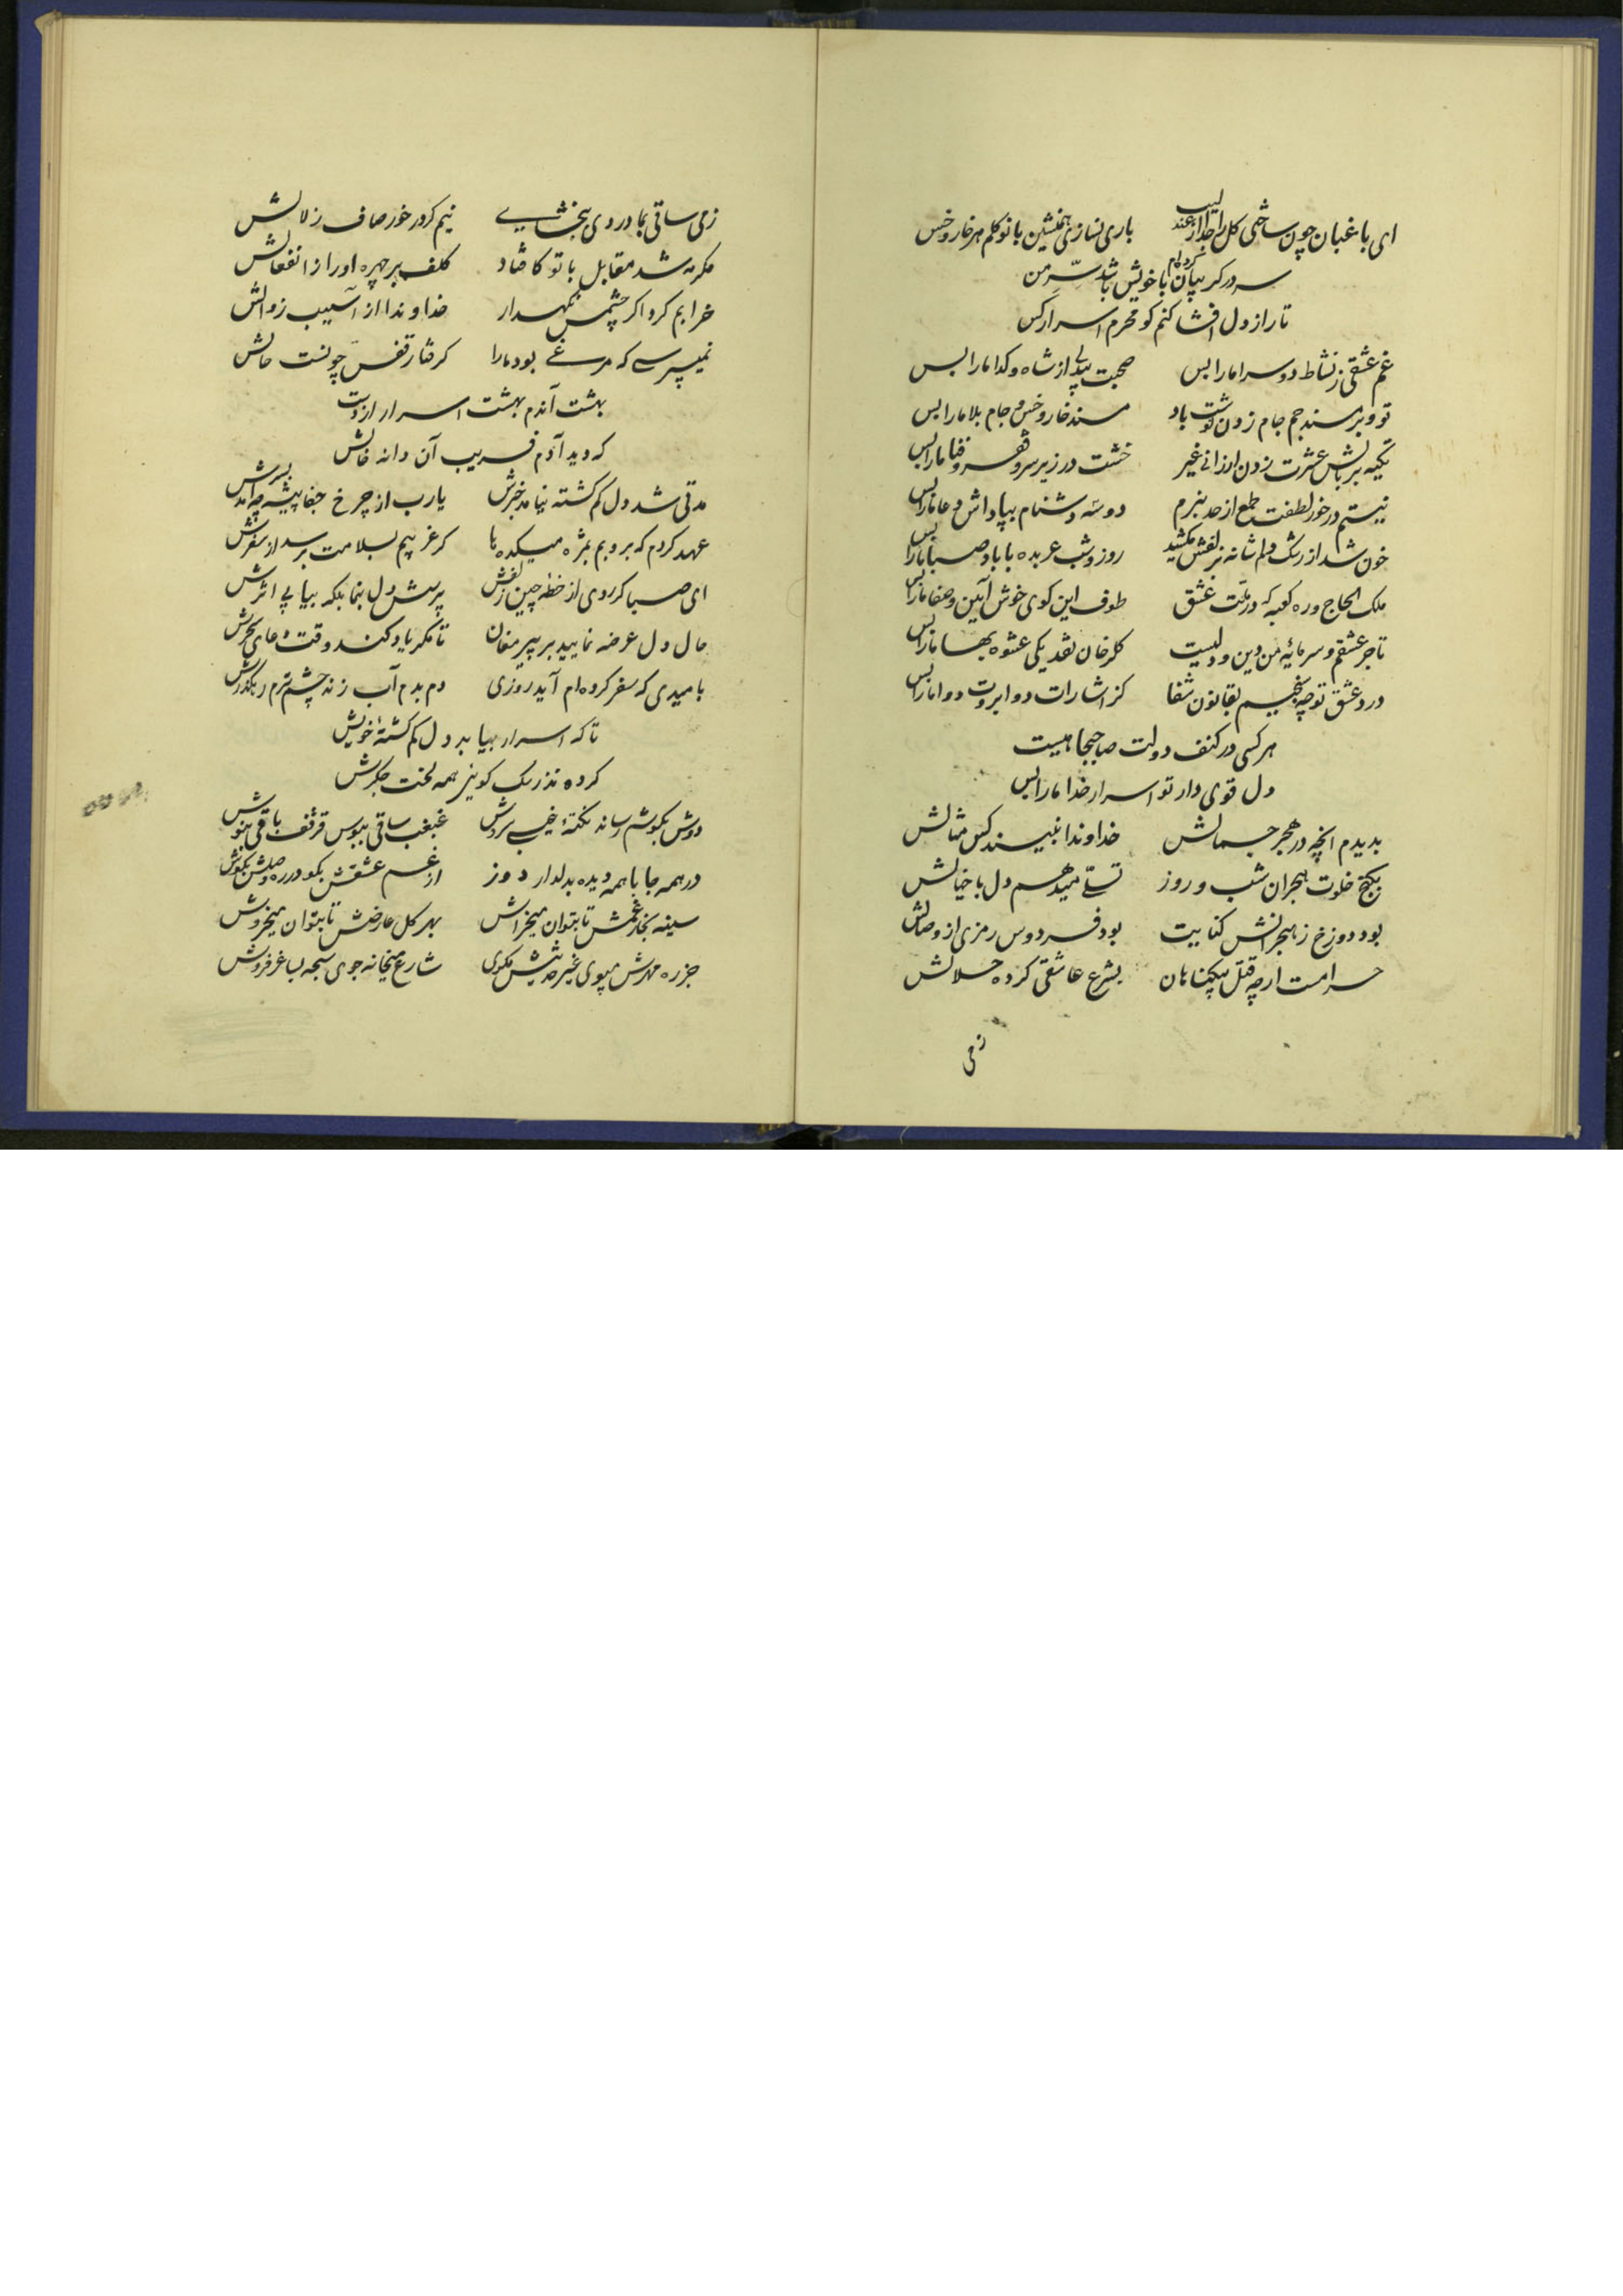 ای باغبان چون ساختی گل را جدا از عندلیب باری نسازی همنشین با نوگلم هر خار و خس
سر در گریبان کرده‌ام با خویش باشد سرّ من
تا راز دل افشا کنم کو محرم اسرار کس
غم عشقی ز نشاط دو سرا ما را بس صحبت بیدلی از شاه و گدا ما را بس
تو و بر مسند جم جام زدن نوشت باد مسند خار و خس و جام بلا ما را بس
تکیه بر بالش عشرت زدن ارزانی غیر خشت در زیر سر و فقر و فنا ما را بس
نیستم در خور لطفت طمع از حد نبرم دو سه دشنام بپاداش دعا ما را بس
خون شد از رشک دلم شانه بزلفش مکشید روز و شب عربده با باد صبا ما را بس
ملک الحاج و ره کعبه که در ملت عشق طوف این کوی خوش آیین و صفا ما را بس
تاجر عشقم و سرمایه من دین و دلیست گلرخان نقد یکی عشوه بها ما را بس
درد عشق تو چه سنجیم بقانون شفا کز اشارات دو ابروت دوا ما را بس
هر کسی در کنف دولت صاحبجاهیست
دل قوی دار تو اسرار خدا ما را بس
بدیدم آنچه در هجر جمالش خداوندا نبیند کس مثالش
بکنج خلوت هجران شب و روز تسلی میدهم دل با خیالش
بود دوزخ ز هجرانش کنایت بود فردوس رمزی از وصالش
حرامست ارچه قتل بیگناهان بشرع عاشقی کرده حلالش
زمی
زمی ساقی بما دردی ببخشایی نیم گر در خور صاف زلالش
مگر مه شد مقابل با تو کافتاد کلف بر چهره او را ز انفعالش
خرابم کرد اگر چشمش نگهدار خداوندا از آسیب زوالش
نمیپرسی که مرغی بود ما را گرفتار قفس چونست حالش
بهشت آندم بهشت اسرار از دست
که دید آدم فریب آن دانه خالش
مدتی شد دل گم گشته نیامد خبرش یا رب از چرخ جفا پیشه چه آمد بسرش
عهد کردم که بروبم بمژه میکده ها گر غریبم بسلامت برسد از سفرش
ای صبا گر روی از خطه چین زلفش پرسش دل بنما بلکه بیابی اثرش
حال دل عرضه نمایید بر پیر مغان تا مگر یاد کند وقت دعای سحرش
بامیدی که سفر کرده‌ام آید روزی دم بدم آب زند چشم ترم رهگذرش
تا که اسرار بیابد دل گم گشته خویش
کرده نذر سگ کویش همه لخت جگرش
دوش بگوشم رساند نکته غیبی سروش غبغب ساقی ببوس قرقف باقی بنوش
در همه جا با همه دیده بدلدار دوز از غم عشقش بگو در ره وصلش بکوش
سینه بخار غمش تا بتوان میخراش بهر گل عارضش تا بتوان میخروش
جز ره مهرش مپوی غیر حدیثش مگوی شارع میخانه جوی سبحه بساغر فروش